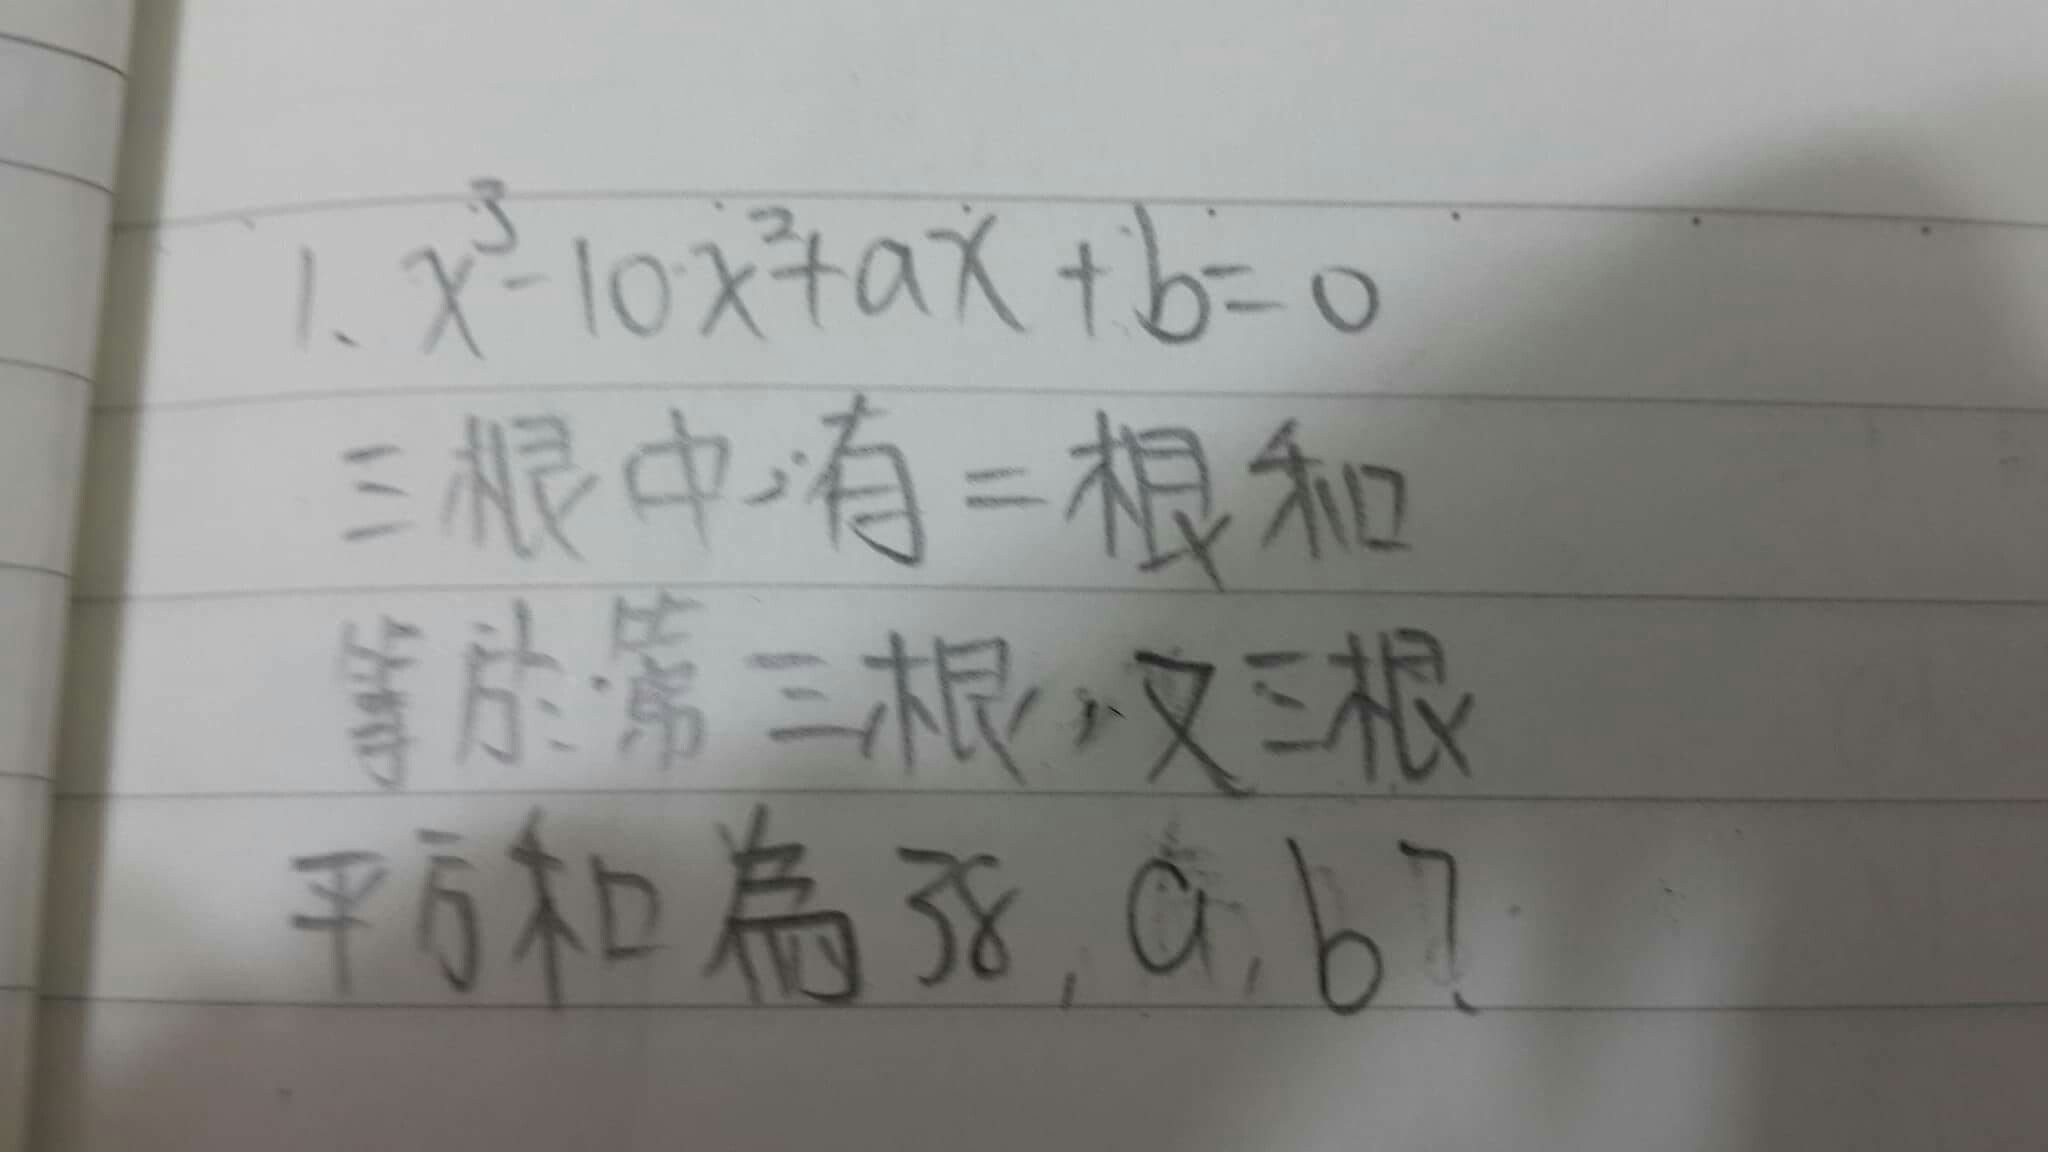 1、x³-10x²+ax+b=0
三根中，有二根和
等於第三根，又三根
平方和為38，a，b？